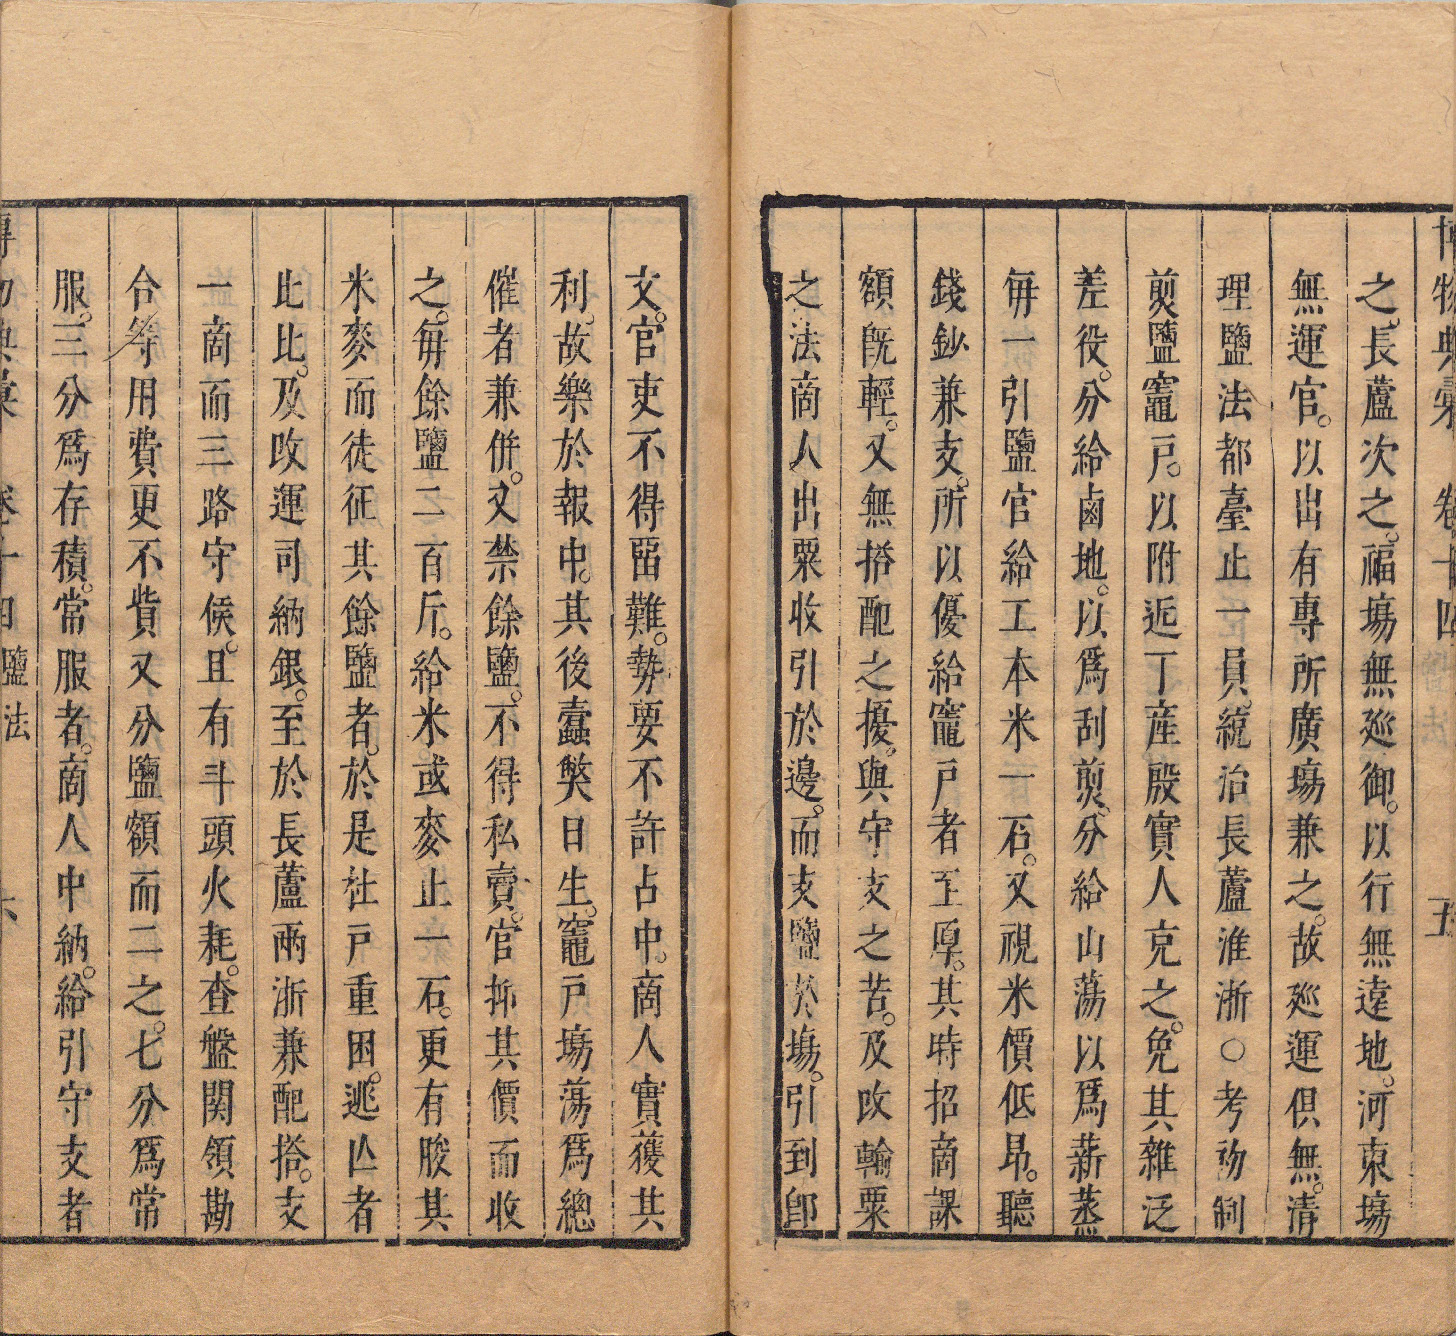 博物典彙　卷十四　五
之。長蘆次之。福塲無廵御。以行無遠地。河東塲
無運官。以出有專所廣塲兼之。故廵運俱無。清
理鹽法都臺止一員。統治長蘆淮浙〇考初制
煎鹽竈戸。以附近丁產殷實人充之。免其雜泛
差役。分給鹵地。以爲刮煎。分給山蕩以爲薪蒸
毎一引鹽官給工本米一石。又視米價低昂。聽
錢鈔兼支。所以優給竈戸者至厚。其時招商課
額旣輕。又無搭配之擾。與守支之苦。及改輸粟
之法商人出粟收引於邊。而支鹽於塲。引到卽
文。官吏不得畱難。勢要不許占中。商人實獲其
利。故樂於報中。其後蠹獘日生。竈戸塲蕩爲總
催者兼併。又禁餘鹽。不得私賣。官抑其價而收
之。毎餘鹽二百斤。給米或麥止一石。更有朘其
米麥而徒征其餘鹽者。於是社戸重困。逃亾者
比比。及改運司納銀。至於長蘆兩浙兼配搭。支
一商而三路守候。且有斗頭火耗。查盤関領勘
合等用費更不貲又分鹽額而二之。七分爲常
服。三分爲存積。常服者。商人中納。給引守支者
博物典彙　卷十四鹽法　六